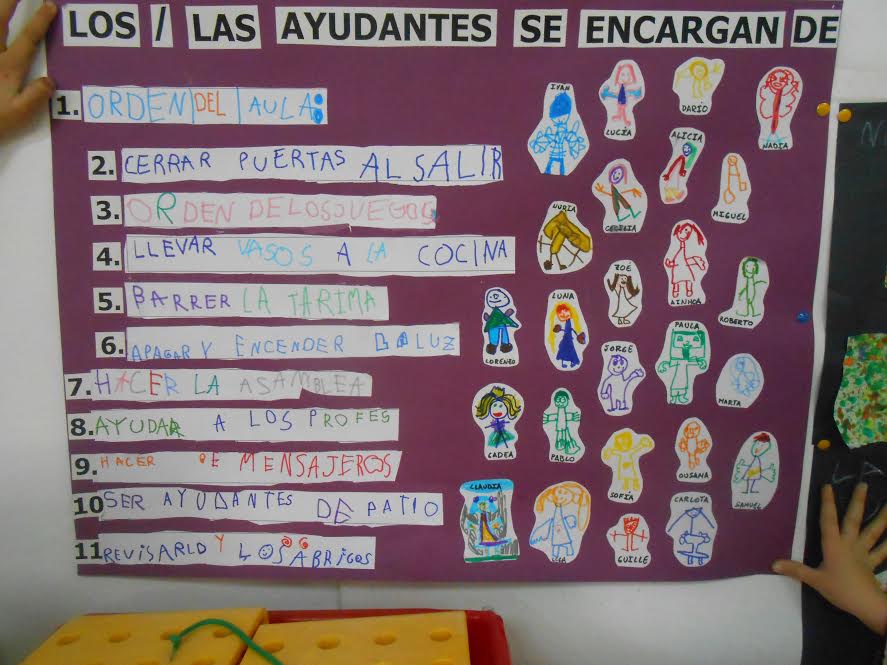 LOS / LAS AYUDANTES SE ENCARGAN DE
1. ORDEN DEL AULA:
2. CERRAR PUERTAS AL SALIR
3. ORDEN DE LOS JUEGOS
4. LLEVAR VASOS A LA COCINA
5. BARRER LA TARIMA
6. APAGAR Y ENCENDER LA LUZ
7. HACER LA ASAMBLEA
8. AYUDAR A LOS PROFES
9. HACER DE MENSAJEROS
10 SER AYUDANTES DE PATIO
11 REVISARLO Y LOS ABRIGOS
IVAN
LUCÍA
DARÍO
NADIA
ALICIA
MIGUEL
CECILIA
NURIA
AINHOA
ZOE
ROBERTO
LORENZO
LUNA
JORGE
PAULA
MARTA
CADEA
PABLO
SOFÍA
OUSANA
SAMUEL
CLAUDIA
GUILLE
CARLOTA